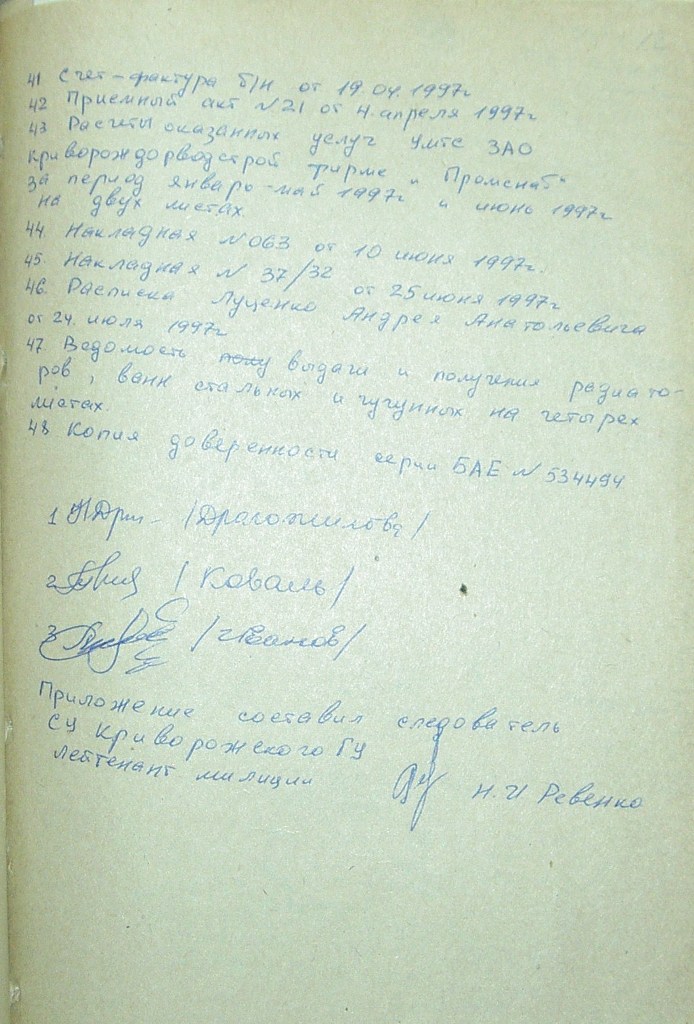 41 Счет-фактура б/н от 19.04.1997г
42 Приемный акт №21 от 4.апреля 1997г
43 Расчеты оказанных услуг УМТС ЗАО
Криворождорводстрой фирме "Промснаб"
за период январь-май 1997г и июнь 1997г
на двух листах.
44. Накладная №063 от 10 июня 1997г.
45. Накладная № 37/32 от 25 июня 1997г
46. Расписка Луценко Андрея Анатольевича
от 24. июля 1997г
47. Ведомость выдачи и получения радиато-
ров, ванн стальных и чугунных на четырех
листах.
48 Копия доверенности серии БАЕ № 534494
1 /Драгожилова/
2 /Коваль/
3 /Иванов/
Приложение составил следователь
СУ Криворожского ГУ
лейтенант милиции Н.И Ревенко